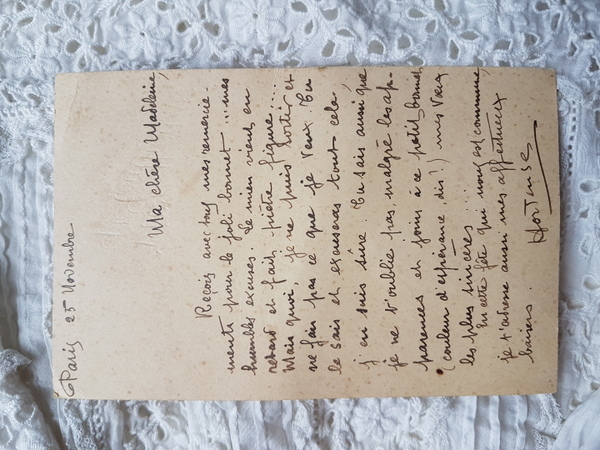 Paris 25 Novembre
Ma chère Madeleine,
Reçois avec tous mes remercie-
ments pour le joli bonnet... mes
humbles excuses. Le mien vient en
retard et fait piètre figure...
Mais quoi, je ne puis sortir et
ne fais pas ce que je veux. Tu
le sais et excuseras tout cela
j'en suis sûre. Tu sais aussi que
je ne t'oublie pas, malgré les ap-
parences et joins à ce petit bonnet
(couleur d'espérance, dis?) mes vœux
les plus sincères...
En cette fête qui nous est commune,
je t'adresse aussi mes affectueux
baisers.
Hortense